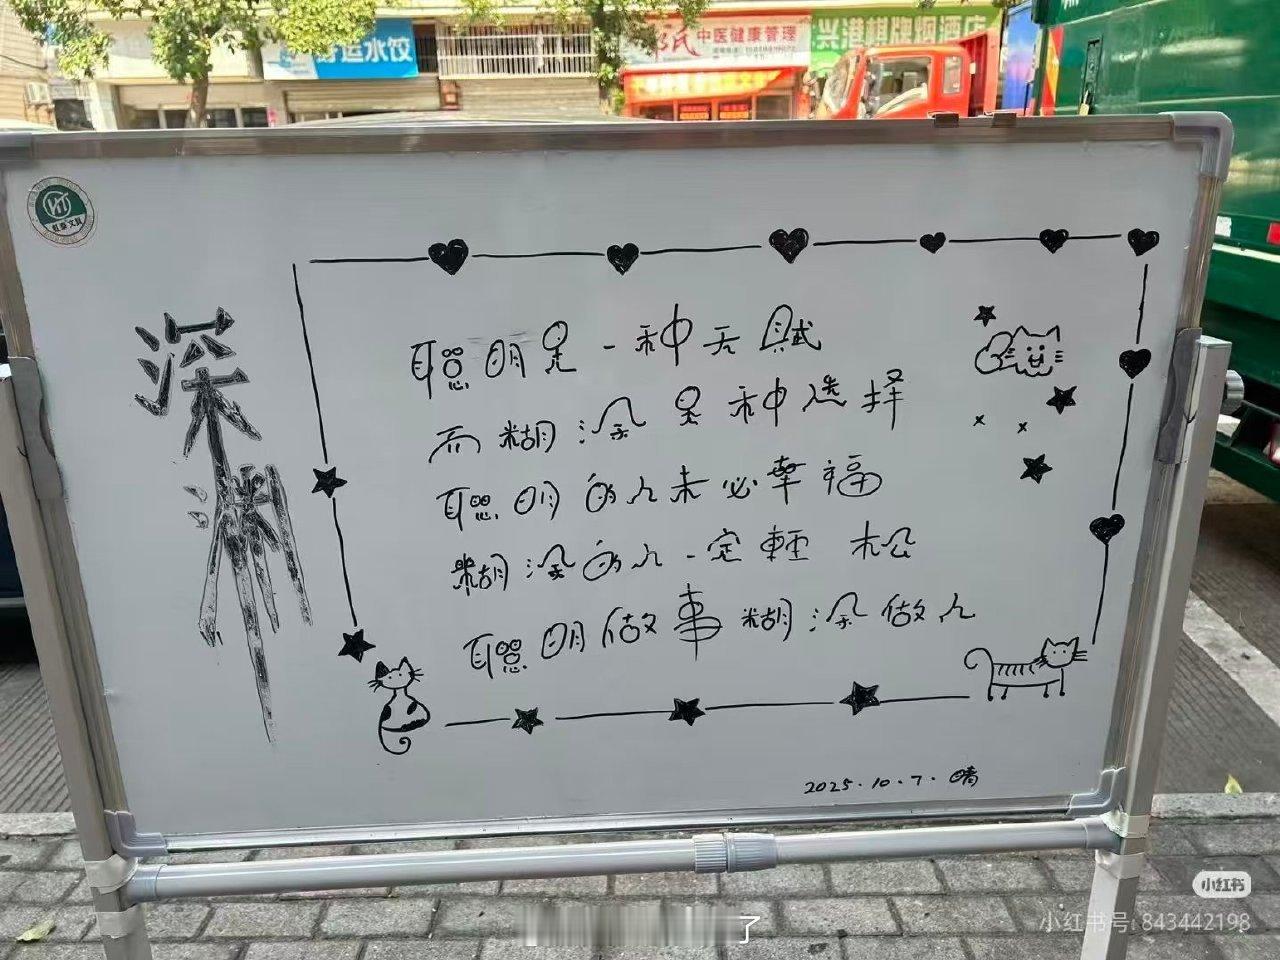 好运水饺
中医健康管理
兴港棋牌烟酒店
深渊
聪明是一种天赋
而糊涂是种选择
聪明的人未必幸福
糊涂的人一定輕松
聪明做事糊涂做人
2025.10.7.晴
小红书
小红书号: 843442198
了